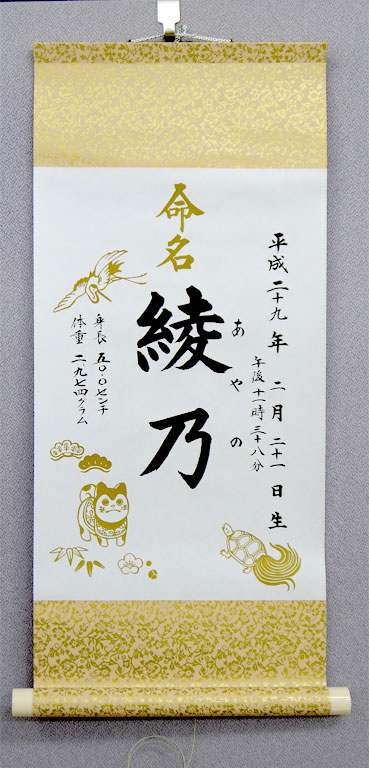 平成二十九年 二月二十一日生
午後十一時三十八分
あやの
命名
綾乃
身長 五〇.〇センチ
体重 二九七四グラム